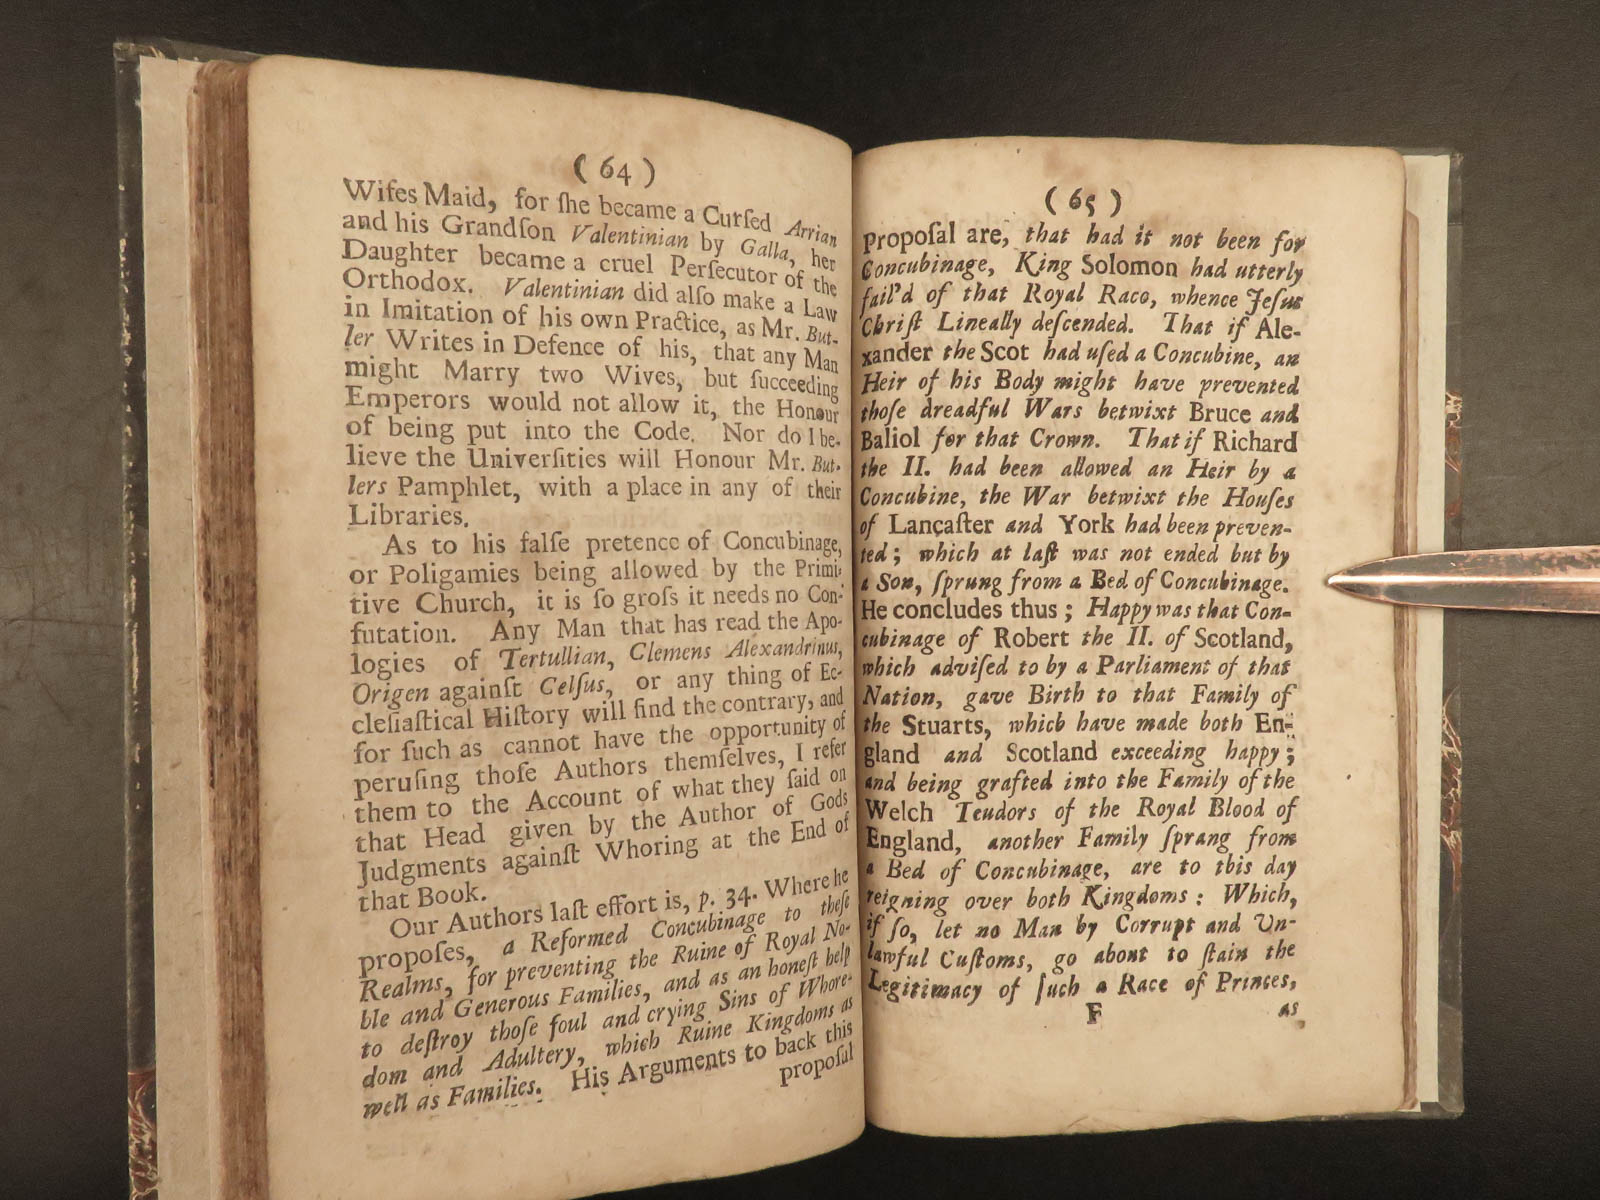 ( 64 )
Wifes Maid, for ſhe became a Curſed Arrian
and his Grandſon Valentinian by Galla, her
Daughter became a cruel Perſecutor of the
Orthodox. Valentinian did alſo make a Law
in Imitation of his own Practice, as Mr. But-
ler Writes in Defence of his, that any Man
might Marry two Wives, but ſucceeding
Emperors would not allow it, the Honour
of being put into the Code. Nor do I be-
lieve the Univerſities will Honour Mr. But-
lers Pamphlet, with a place in any of their
Libraries.
As to his falſe pretence of Concubinage,
or Poligamies being allowed by the Primi-
tive Church, it is ſo groſs it needs no Con-
futation. Any Man that has read the Apo-
logies of Tertullian, Clemens Alexandrinus,
Origen againſt Celſus, or any thing of Ec-
cleſiaſtical Hiſtory will find the contrary, and
for ſuch as cannot have the opportunity of
peruſing thoſe Authors themſelves, I refer
them to the Account of what they ſaid on
that Head given by the Author of Gods
Judgments againſt Whoring at the End of
that Book.
Our Authors laſt effort is, p. 34. Where he
propoſes, a Reformed Concubinage to theſe
Realms, for preventing the Ruine of Royal No-
ble and Generous Families, and as an honeſt help
to deſtroy thoſe foul and crying Sins of Whore-
dom and Adultery, which Ruine Kingdoms as
well as Families. His Arguments to back this
propoſal
( 65 )
propoſal are, that had it not been for
Concubinage, King Solomon had utterly
fail'd of that Royal Race, whence Jeſus
Chriſt Lineally deſcended. That if Ale-
xander the Scot had uſed a Concubine, an
Heir of his Body might have prevented
thoſe dreadful Wars betwixt Bruce and
Baliol for that Crown. That if Richard
the II. had been allowed an Heir by a
Concubine, the War betwixt the Houſes
of Lancaſter and York had been preven-
ted; which at laſt was not ended but by
a Son, ſprung from a Bed of Concubinage.
He concludes thus; Happy was that Con-
cubinage of Robert the II. of Scotland,
which adviſed to by a Parliament of that
Nation, gave Birth to that Family of
the Stuarts, which have made both En-
gland and Scotland exceeding happy;
and being grafted into the Family of the
Welch Teudors of the Royal Blood of
England, another Family ſprang from
a Bed of Concubinage, are to this day
reigning over both Kingdoms: Which,
if ſo, let no Man by Corrupt and Un-
lawful Cuſtoms, go about to ſtain the
Legitimacy of ſuch a Race of Princes,
F as